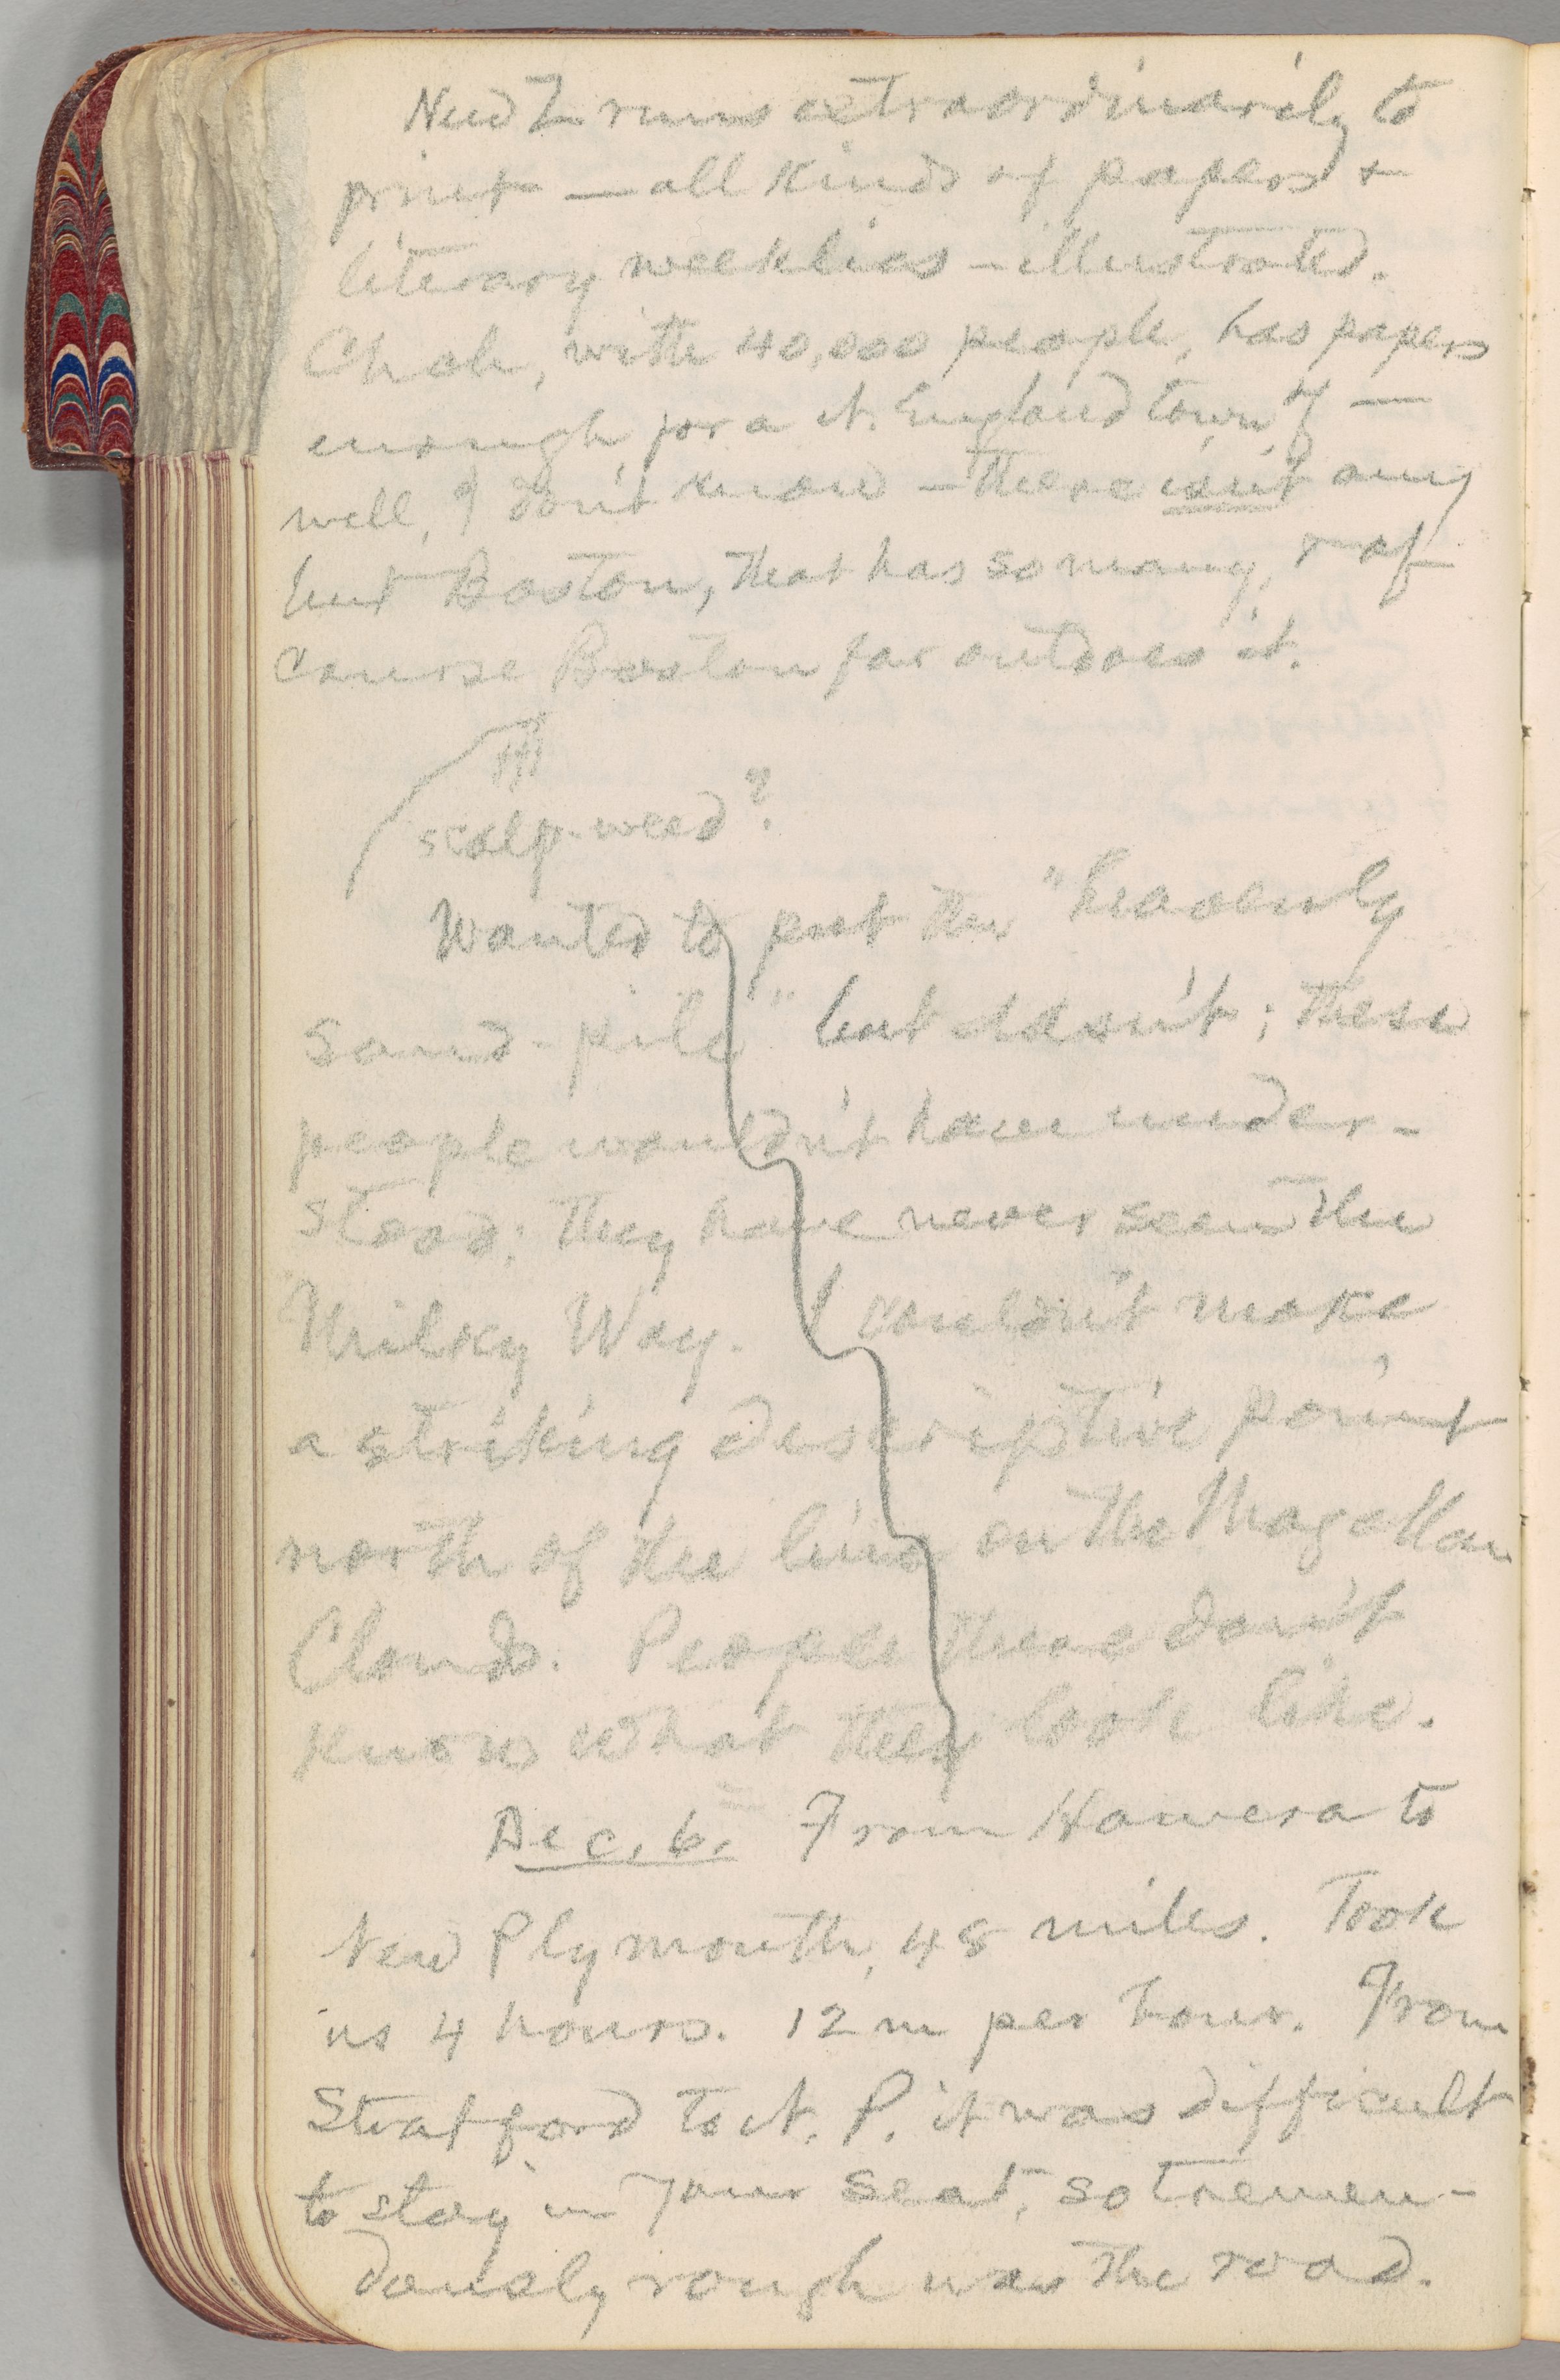 New Z runs extraordinarily to
print — all kinds of papers &
literary weeklies — illustrated.
Chch, with 40,000 people, has papers
enough for a N. England town of —
well, I don't know — there isn't any
but Boston, that has so many, & of
course Boston far outdoes it.
scalp-weed?
Wanted to put the "heavenly
sand-pile" but dasn't; these
people wouldn't have under-
stood; they have never seen the
Milky Way. I couldn't make
a striking descriptive point
north of the line on the Magellan
Clouds. People there don't
know what they look like.
Dec. 6. From Hawera to
New Plymouth, 48 miles. Took
us 4 hours. 12 m per hour. From
Stratford to N. P. it was difficult
to stay in your seat, so tremen-
dously rough was the road.